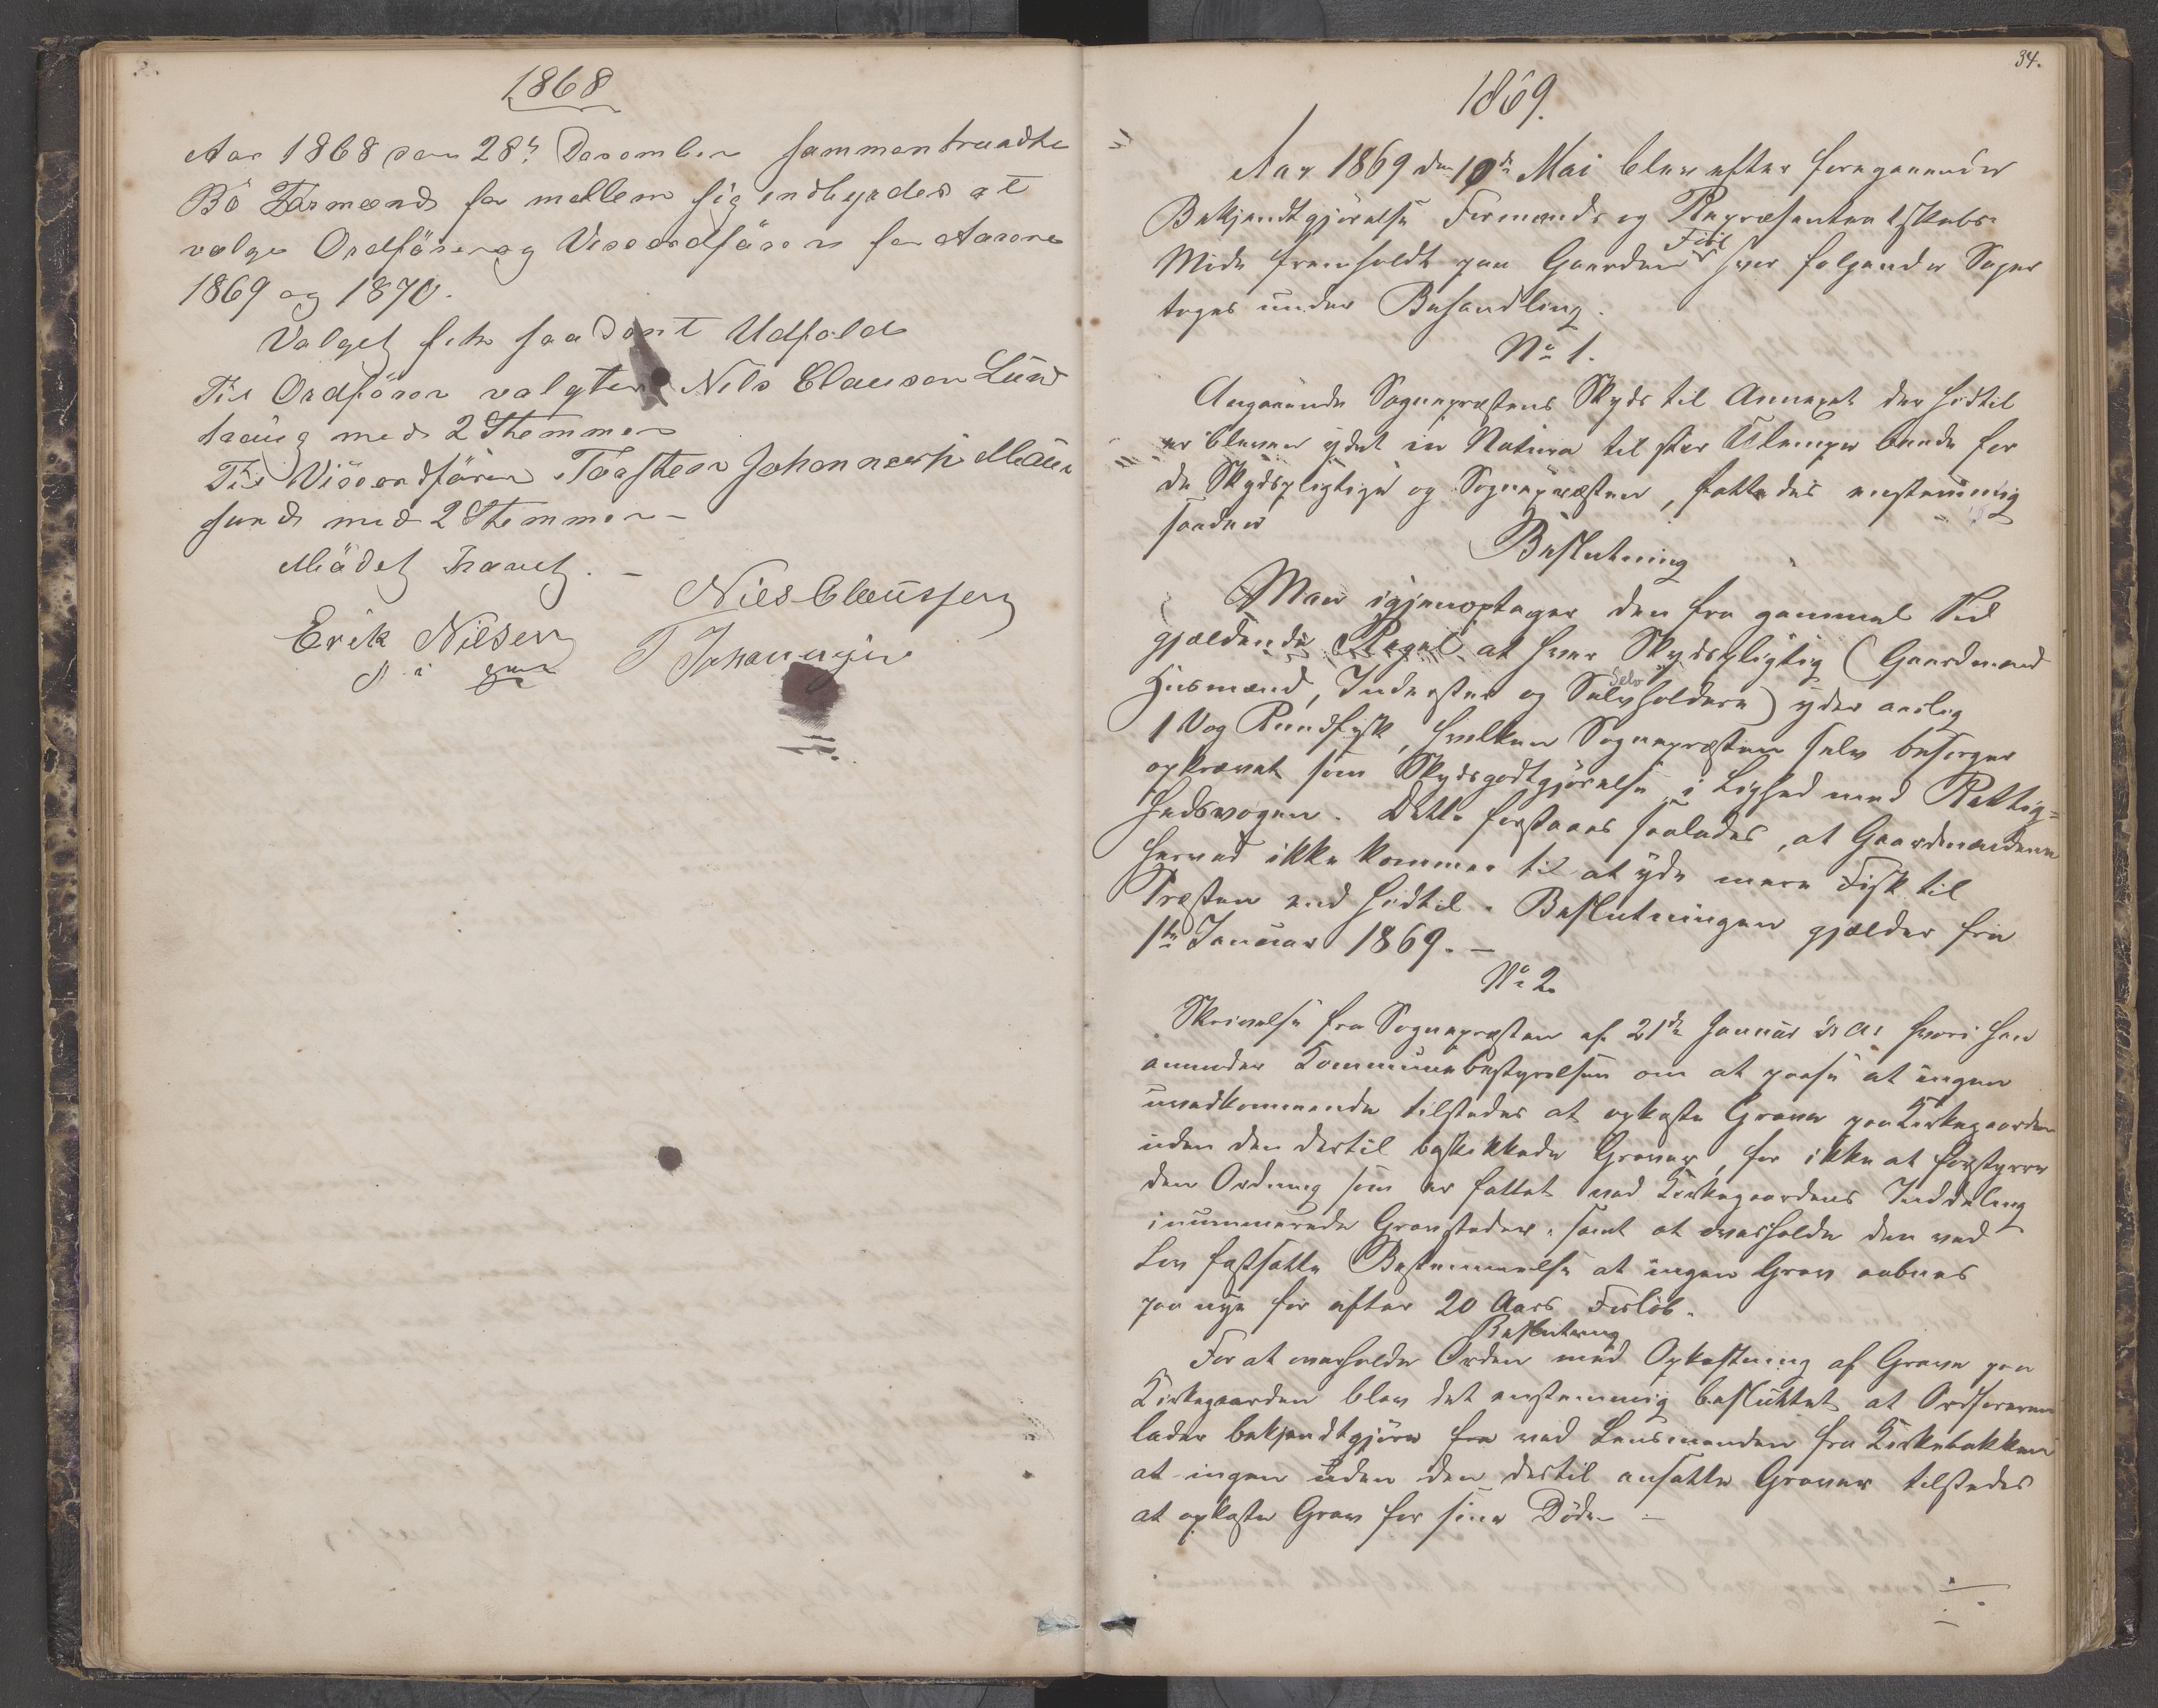 1868
Aar 1868 den 28de Desember sammentraadte
Bö Formænd for mellem sig indbyrdes at
vælge Ordförer og Viseordförer for Aarene
1869 og 1870.
Valget fik saadant Udfald
Til Ordförer valgtes Nils Clausen Lund
traug med 2 Stemmer
Til Viseordförer Torsten Johannesen
sund med 2 Stemmer -
Mödet hævet. -
Nils Claussen
Erik Nilsen T Johannesen
34.
1869.
Aar 1869 den 10de Mai blev efter foregaaende
Bekjendtgjörelse Formands og Repræsentantskabs-
Möde fremholdt paa Gaarden hvor følgende Sager
toges under Behandling.
No 1.
Angaaende Sognepræstens Skyds til Annexet der hidtil
er bleven ydet in Natura til stor Ulempe baade for
de Skydspligtige og Sognepræsten, fattedes enstemmig
saadan
Beslutning
Man igjenoptager den fra gammel Tid
gjældende Regel at hver Skydspligtig (Gaardmænd
Husmænd, Inderster og Selvholdere) yder aarlig
Selv
1 Vog Rundfisk, hvilken Sognepræsten selv besørger
opkrævet som Skydsgodtgjörelse i Lighed med Rettig=
hedsvogen. Dette forstaaes saaledes, at Gaardmændene
herved ikke kommer til at yde mere Fisk til
Præsten end hidtil. Beslutningen gjælder fra
1ste Januar 1869. -
No 2.
Skrivelse fra Sognepræsten af 21de Januar d. A. hvori han
anmoder Kommunebestyrelsen om at paase at ingen
uvedkommende tilstedes at opkaste Grave paa Kirkegaarden
uden den dertil beskikkede Graver, for ikke at forstyrre
den Ordning som er fattet ved Kirkegaardens Inddeling
i nummerede Gravsteder, samt at overholde den ved
Lov fastsatte Bestemmelse at ingen Grav aabnes
paa nye før efter 20 Aars Forløb.
Beslutning
For at overholde Orden med Opkastning af Grave paa
Kirkegaarden blev det enstemmig besluttet at Ordføreren
lader bekjendtgjöre fra ved Lensmanden fra Kirkebakken
at ingen uden den dertil ansatte Graver tilstedes
at opkaste Grav for sine Døde -